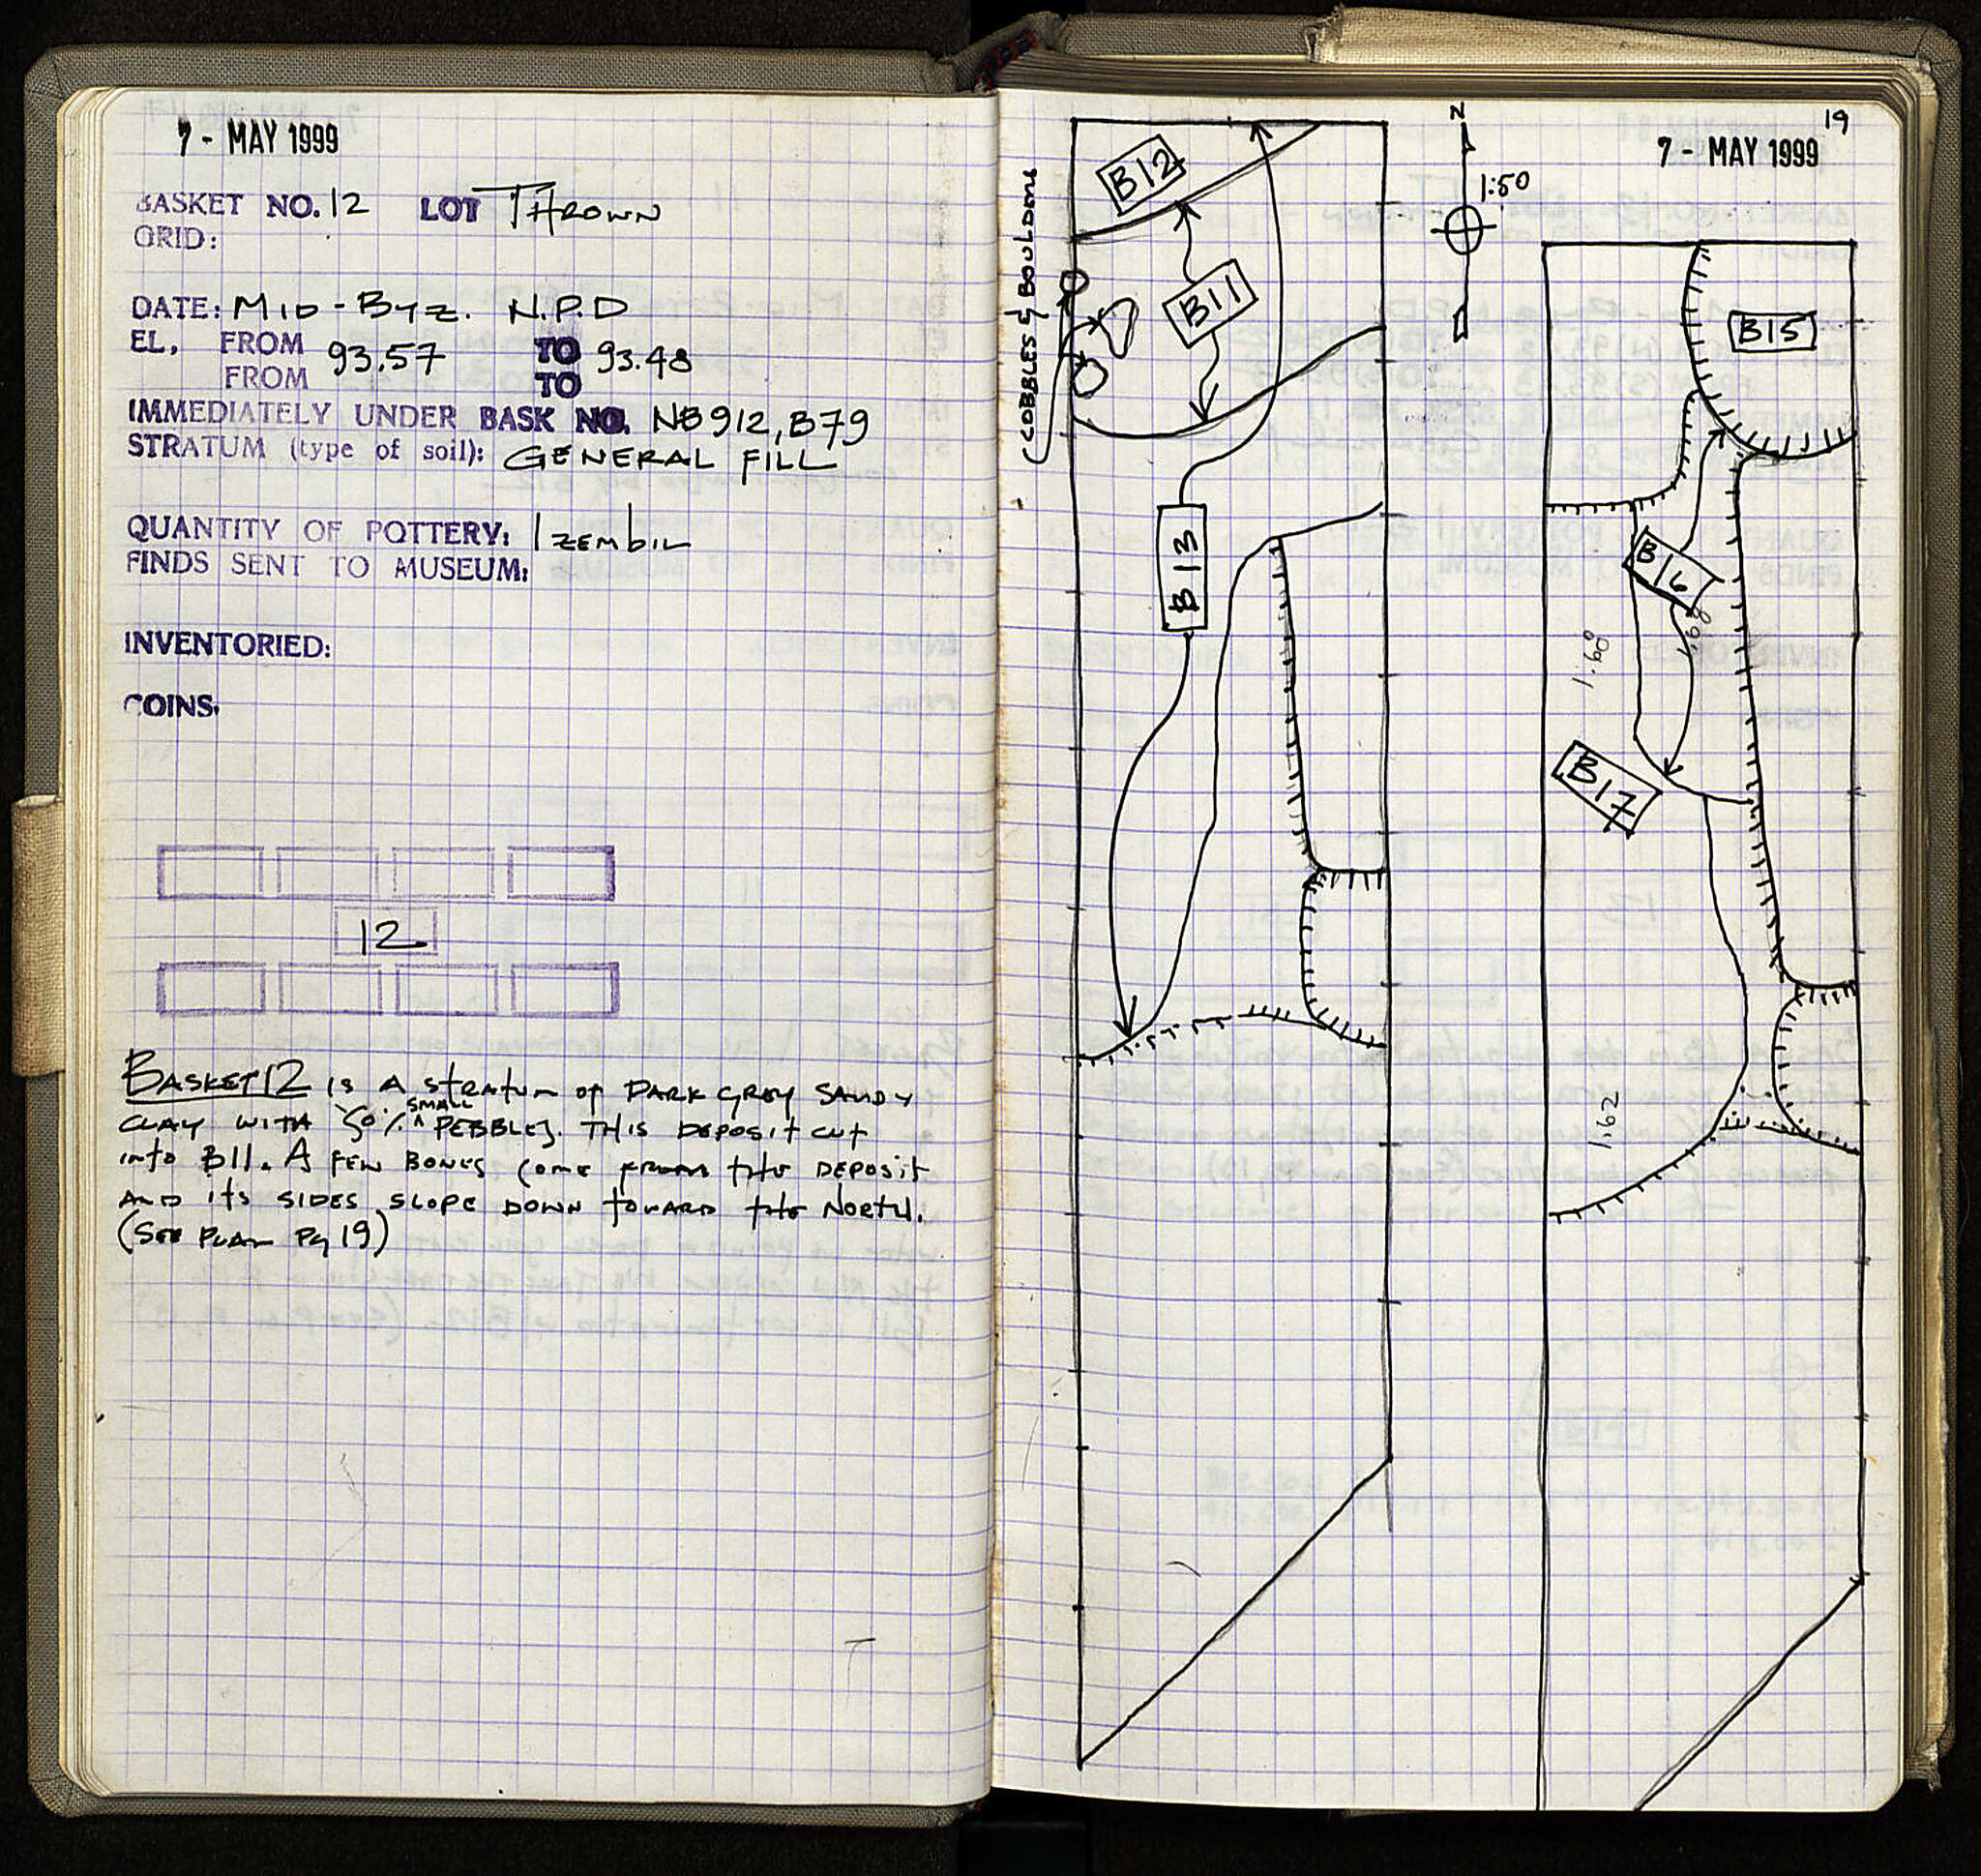 7 - MAY 1999
BASKET NO. 12 LOT THROWN
GRID:
DATE: MID-BYZ. N.P.D
EL, FROM 93.57 TO 93.48
FROM TO
IMMEDIATELY UNDER BASK NO. NB912, B79
STRATUM (type of soil): GENERAL FILL
QUANTITY OF POTTERY: 1 ZEMBIL
FINDS SENT TO MUSEUM:
INVENTORIED:
COINS:
12
BASKET 12 IS A STRATUM OF DARK GREY SANDY
CLAY WITH 50% SMALL PEBBLES. THIS DEPOSIT CUT
INTO B11. A FEW BONES COME FROM THE DEPOSIT
AND ITS SIDES SLOPE DOWN TOWARD THE NORTH.
(SEE PLAN Pg 19)
19
7 - MAY 1999
N
1:50
COBBLES & BOULDERS
B12
B11
B13
B15
B16
1.68
1.60
B17
1.62